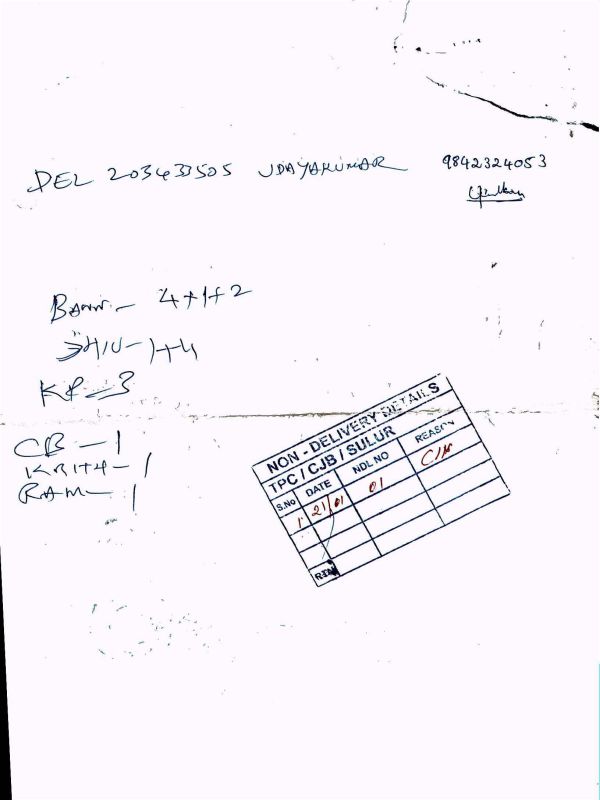 DEL 203433505 UDAYAKUMAR 9842324053
Bann - 4+1+2
- 1+4
KR - 3
CB - 1
- 1
RAM - 1
NON - DELIVERY DETAILS
TPC / CJB / SULUR
S.No DATE NDL NO REASON
1 21/01 01